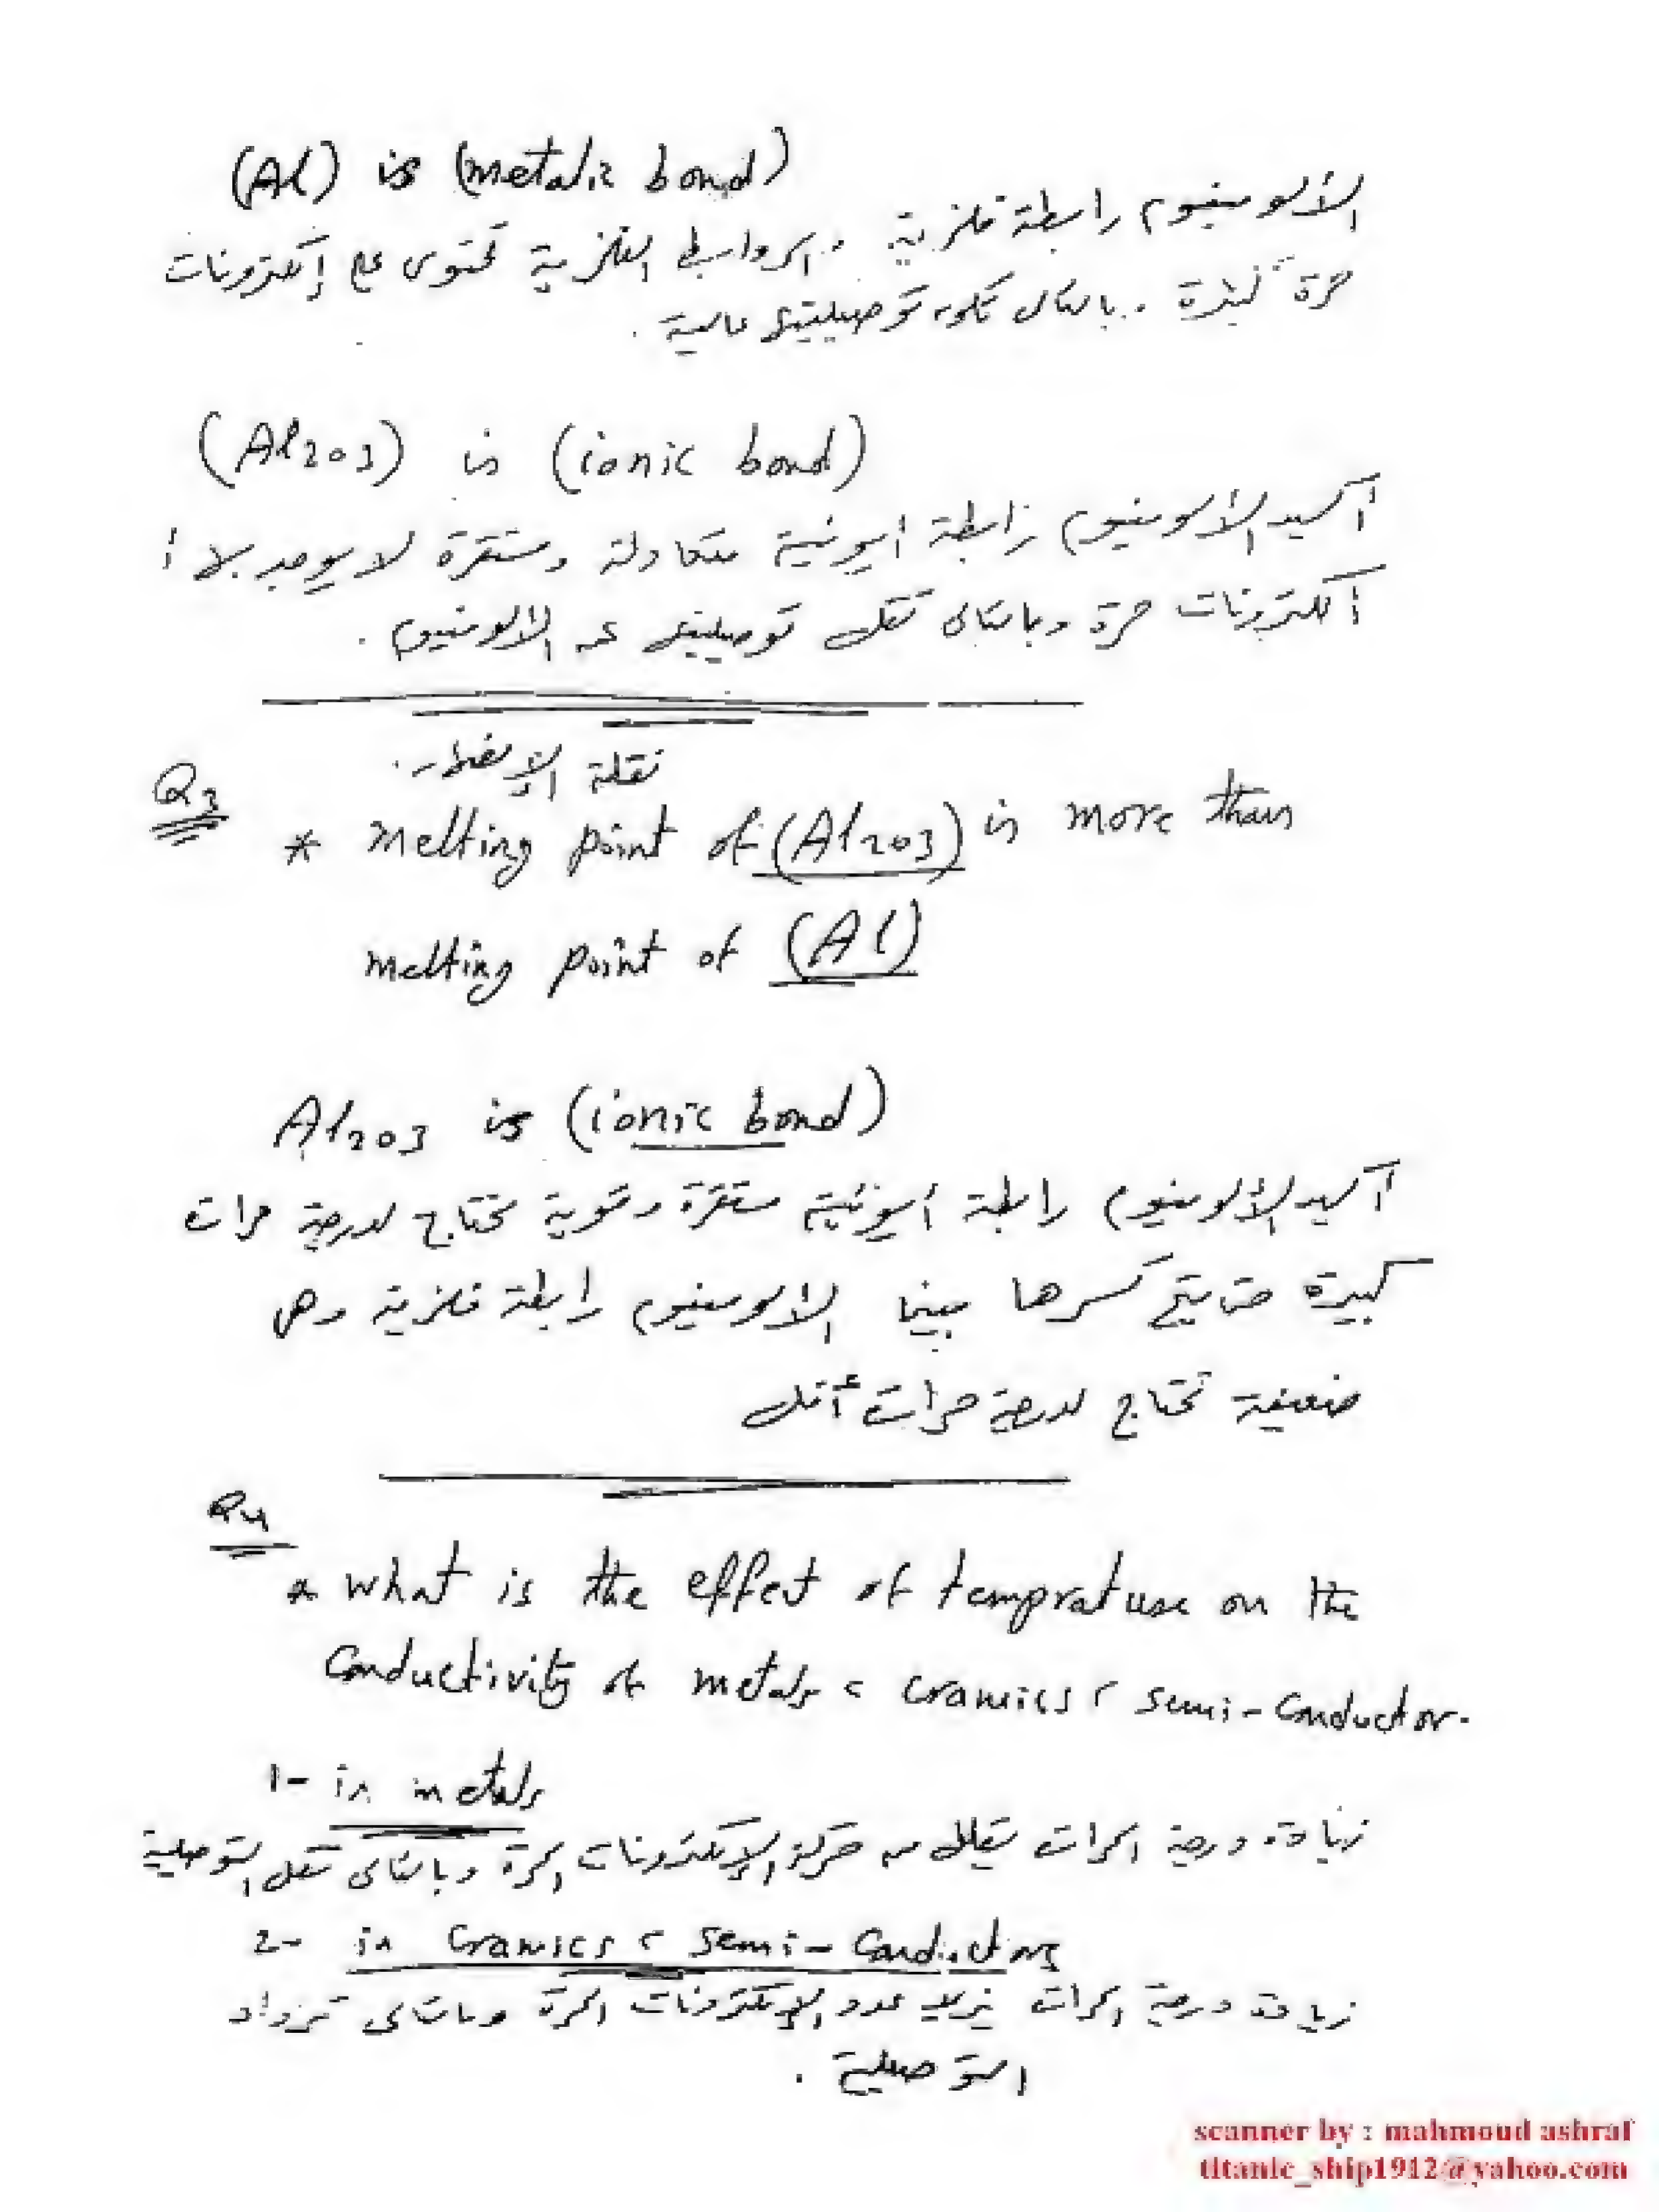 (Al) is (metalic bond)
الألومنيوم رابطة فلزية . الروابط الفلزية تحتوى على إلكترونات
حرة كثيرة . بالتالى تكون توصيليتها عالية .
(Al2O3) is (ionic bond)
أكسيد الألومنيوم رابطة أيونية متعادلة ومستقرة لا يوجد بها
الكترونات حرة وبالتالى تقل توصيليتها عن الألومنيوم .
نقطة الإنصهار .
Q3
* melting point of (Al2O3) is more than
melting point of (Al)
Al2O3 is (ionic bond)
أكسيد الألومنيوم رابطة أيونية مستقرة وقوية تحتاج لدرجة حرارة
كبيرة حتى يتم كسرها بينما الألومنيوم رابطة فلزية وهى
ضعيفة تحتاج لدرجة حرارة أقل
Q4
* what is the effect of temprature on the
conductivity of metals , cramics , semi-conductor.
1- in metals
زيادة درجة الحرارة يقلل من حركة الإلكترونات الحرة وبالتالى تقل التوصيلية
2- in cramics , semi-conductors
زيادة درجة الحرارة يزيد عدد الإلكترونات الحرة وبالتالى تزداد
التوصيلية .
scanner by : mahmoud ashraf
titanic_ship1912@yahoo.com